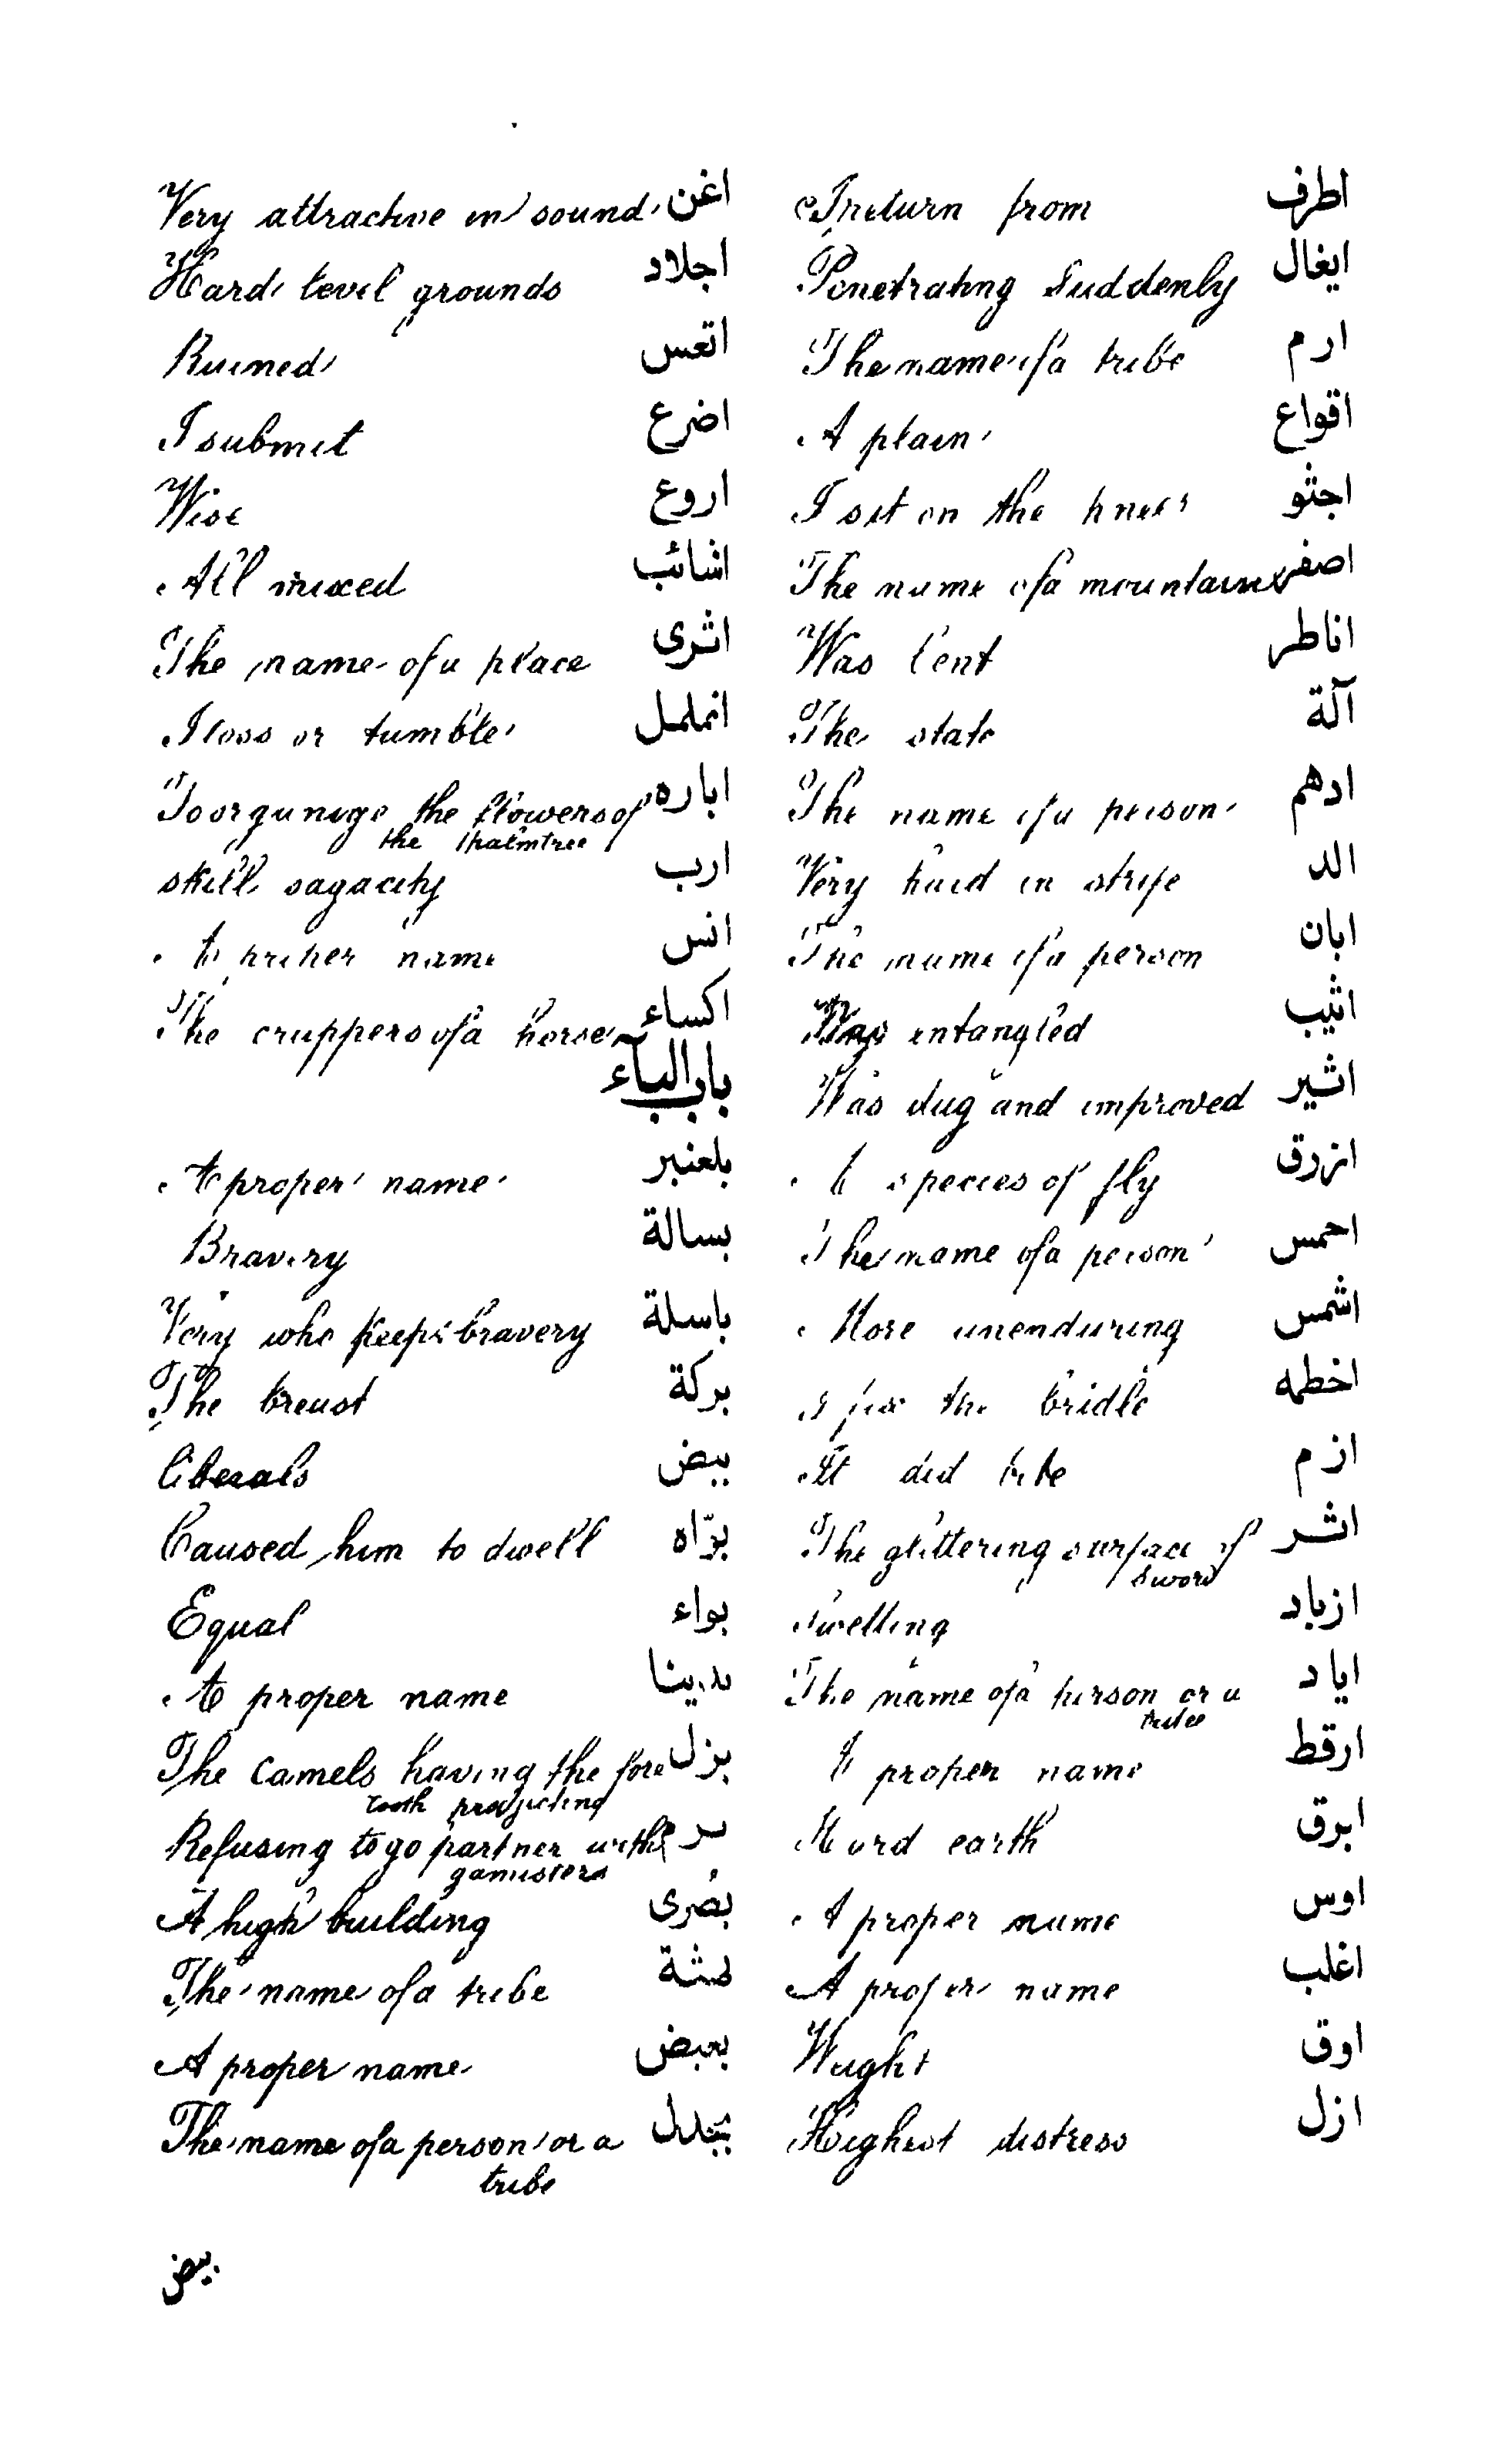 اطرف I return from
ايغال Penetrating Suddenly
ارم The name of a tribe
اقواع A plain
اجثو I sit on the knees
اصفر The name of a mountain
اناطر Was bent
آلة The state
ادهم The name of a person
الد Very hard in strife
ابان The name of a person
اثيب Was entangled
اثير Was dug and improved
ازرق A species of fly
احمس The name of a person
اشمس More unenduring
اخطمه I fix the bridle
ازم It did bite
اثر The glittering surface of
Sword
ازباد Swelling
اياد The name of a person or a
tribe
ارقط A proper name
ابرق Hard earth
اوس A proper name
اغلب A proper name
اوق Weight
ازل Highest distress
اغن Very attractive in sound
اجلاد Hard level grounds
اتعس Ruined
اضرع I submit
اروع Wise
اشائب All mixed
اثرى The name of a place
اتململ I toss or tumble
اباره To organize the flowers of
the palmtree
ارب skill sagacity
انس A proper name
اكساء The cruppers of a horse
باب البآء
بلعنبر A proper name
بسالة Bravery
باسلة Very who keeps bravery
بركة The breast
بيض liberals
بوّاه Caused him to dwell
بواء Equal
A proper name
بزل The camels having the fore
tooth projecting
برم Refusing to go partner with
gamesters
بصرى A high building
بهثة The name of a tribe
بعيض A proper name
The name of a person or a
tribe
بيض